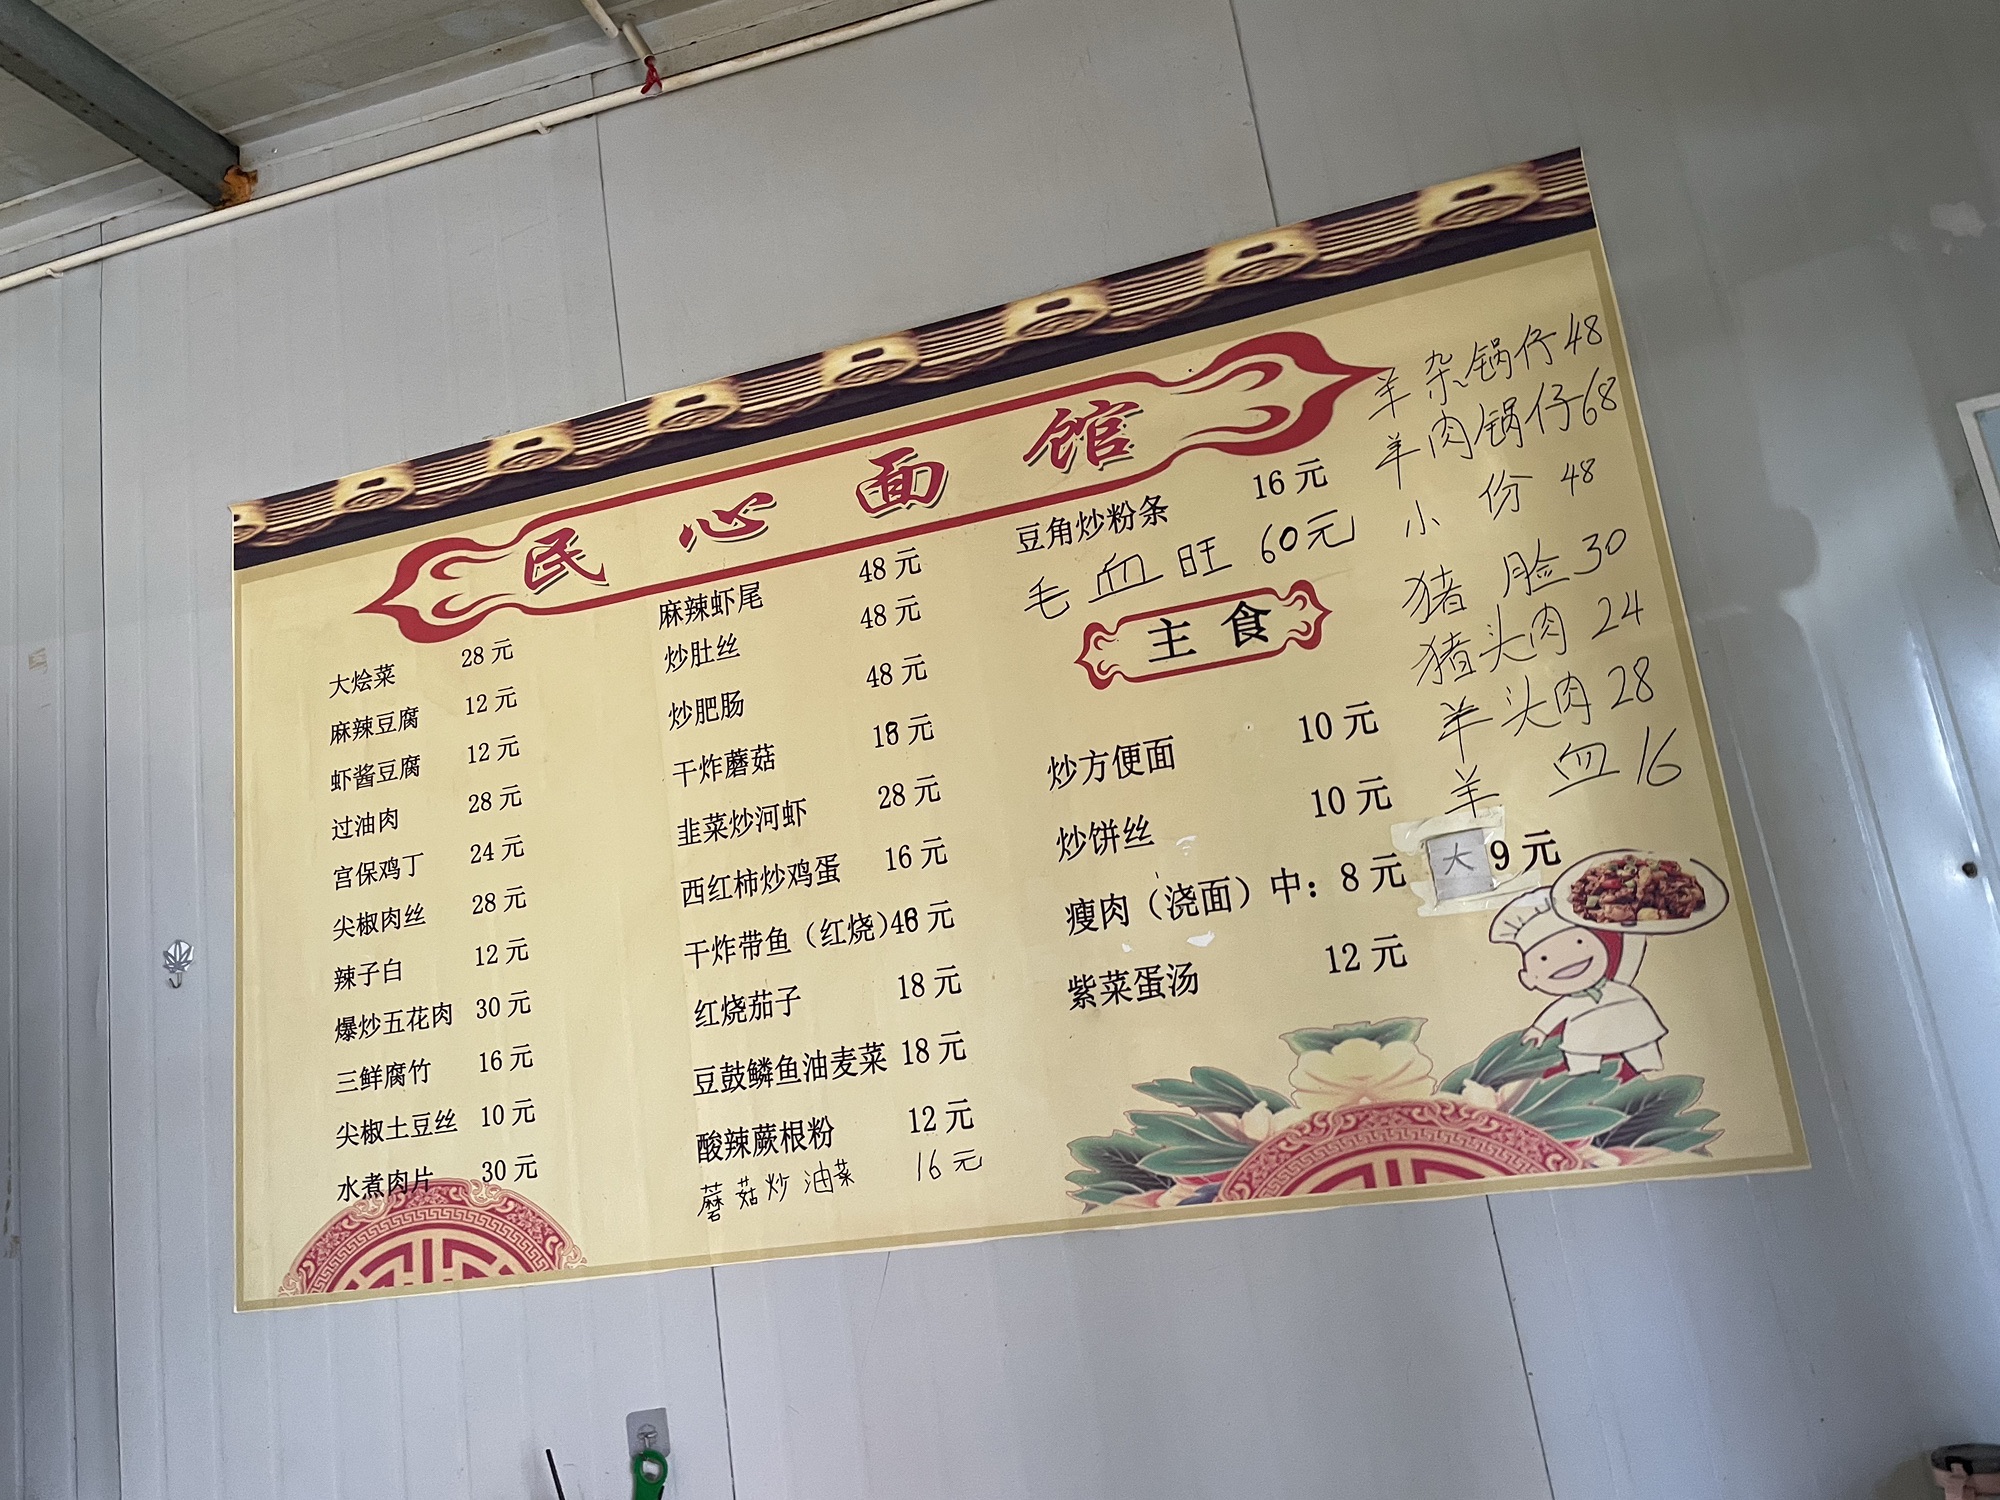 民心面馆
大烩菜 28元
麻辣豆腐 12元
虾酱豆腐 12元
过油肉 28元
宫保鸡丁 24元
尖椒肉丝 28元
辣子白 12元
爆炒五花肉 30元
三鲜腐竹 16元
尖椒土豆丝 10元
水煮肉片 30元
麻辣虾尾 48元
炒肚丝 48元
炒肥肠 48元
干炸蘑菇 18元
韭菜炒河虾 28元
西红柿炒鸡蛋 16元
干炸带鱼（红烧）48元
红烧茄子 18元
豆鼓鳞鱼油麦菜 18元
酸辣蕨根粉 12元
蘑菇炒油菜 16元
豆角炒粉条 16元
毛血旺 60元
主食
炒方便面 10元
炒饼丝 10元
瘦肉（浇面）中：8元 大 9元
紫菜蛋汤 12元
羊杂锅仔48
羊肉锅仔68
小份 48
猪脸30
猪头肉 24
羊头肉 28
羊血16